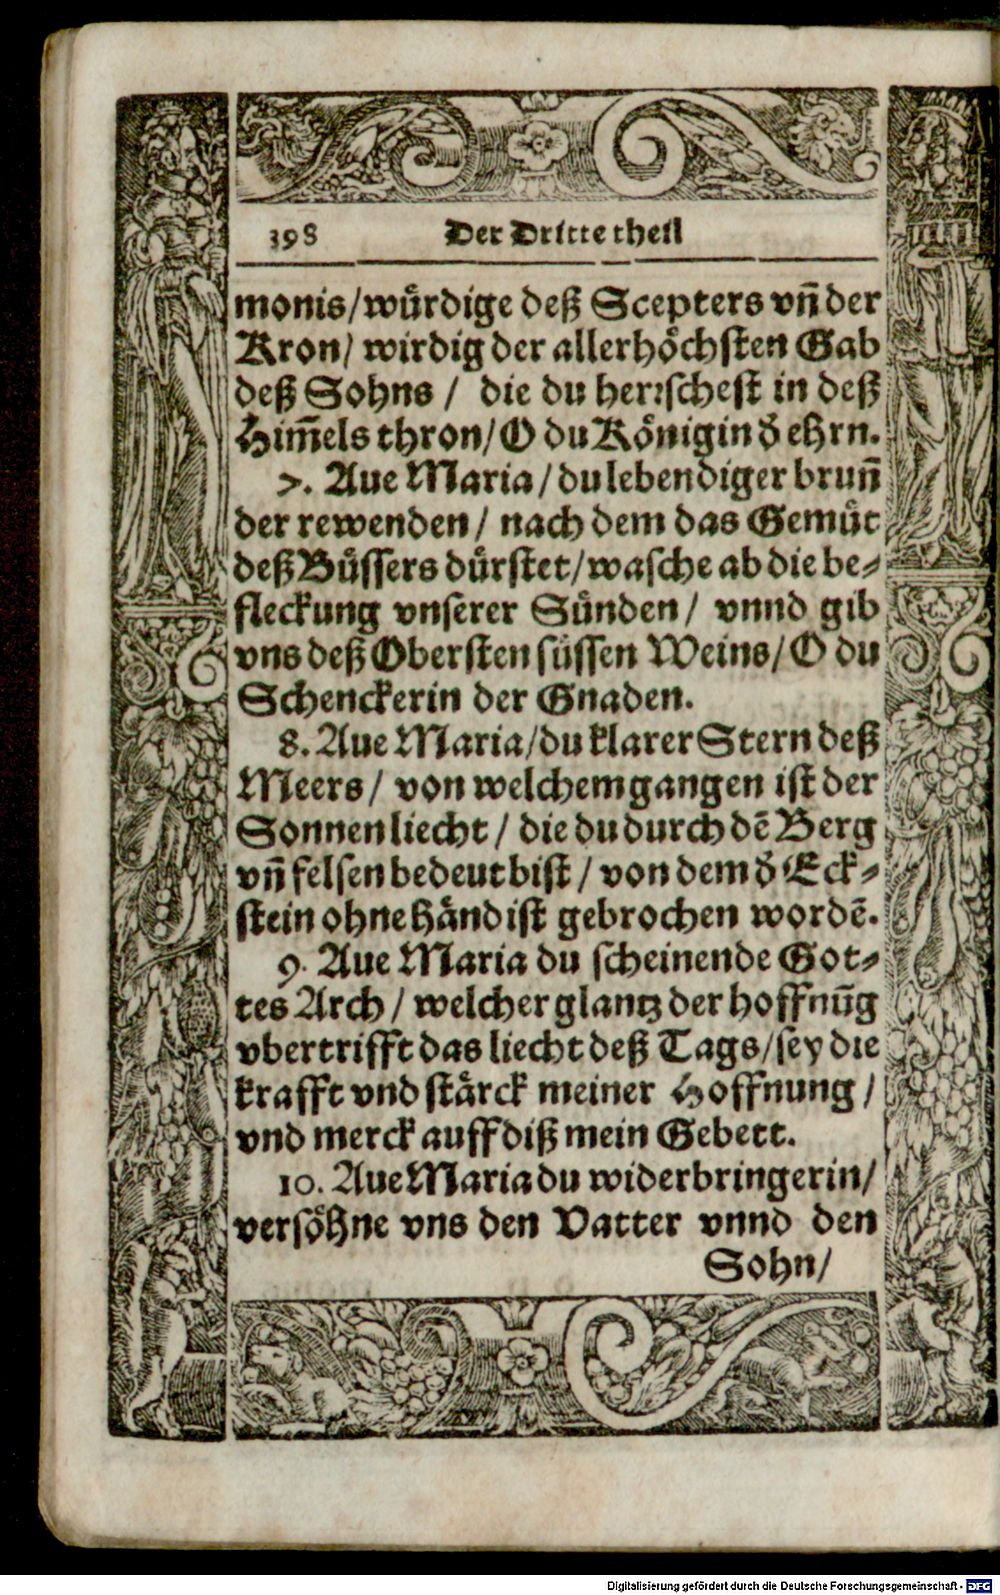 398 Der Dritte theil
monis/ wuͤrdige deß Scepters vñ der
Kron/ wirdig der allerhoͤchsten Gab
deß Sohns / die du herꝛschest in deß
Him̃els thron/ O du Koͤnigin d̕ ehrn.
7. Aue Maria / du lebendiger brun̄
der rewenden / nach dem das Gemuͤt
deß Buͤssers duͤrstet/ wasche ab die be⸗
fleckung vnserer Suͤnden / vnnd gib
vns deß Obersten suͤssen Weins/ O du
Schenckerin der Gnaden.
8. Aue Maria/ du klarer Stern deß
Meers / von welchem gangen ist der
Sonnen liecht / die du durch dē Berg
vñ felsen bedeut bist / von dem d̕ Eck⸗
stein ohne Haͤnd ist gebrochen wordē.
9. Aue Maria du scheinende Got⸗
tes Arch / welcher glantz der hoffnūg
vbertrifft das liecht deß Tags/ sey die
krafft vnd staͤrck meiner Hoffnung /
vnd merck auff diß mein Gebett.
10. Aue Maria du widerbringerin/
versoͤhne vns den Vatter vnnd den
Sohn/
Digitalisierung gefördert durch die Deutsche Forschungsgemeinschaft - DFG